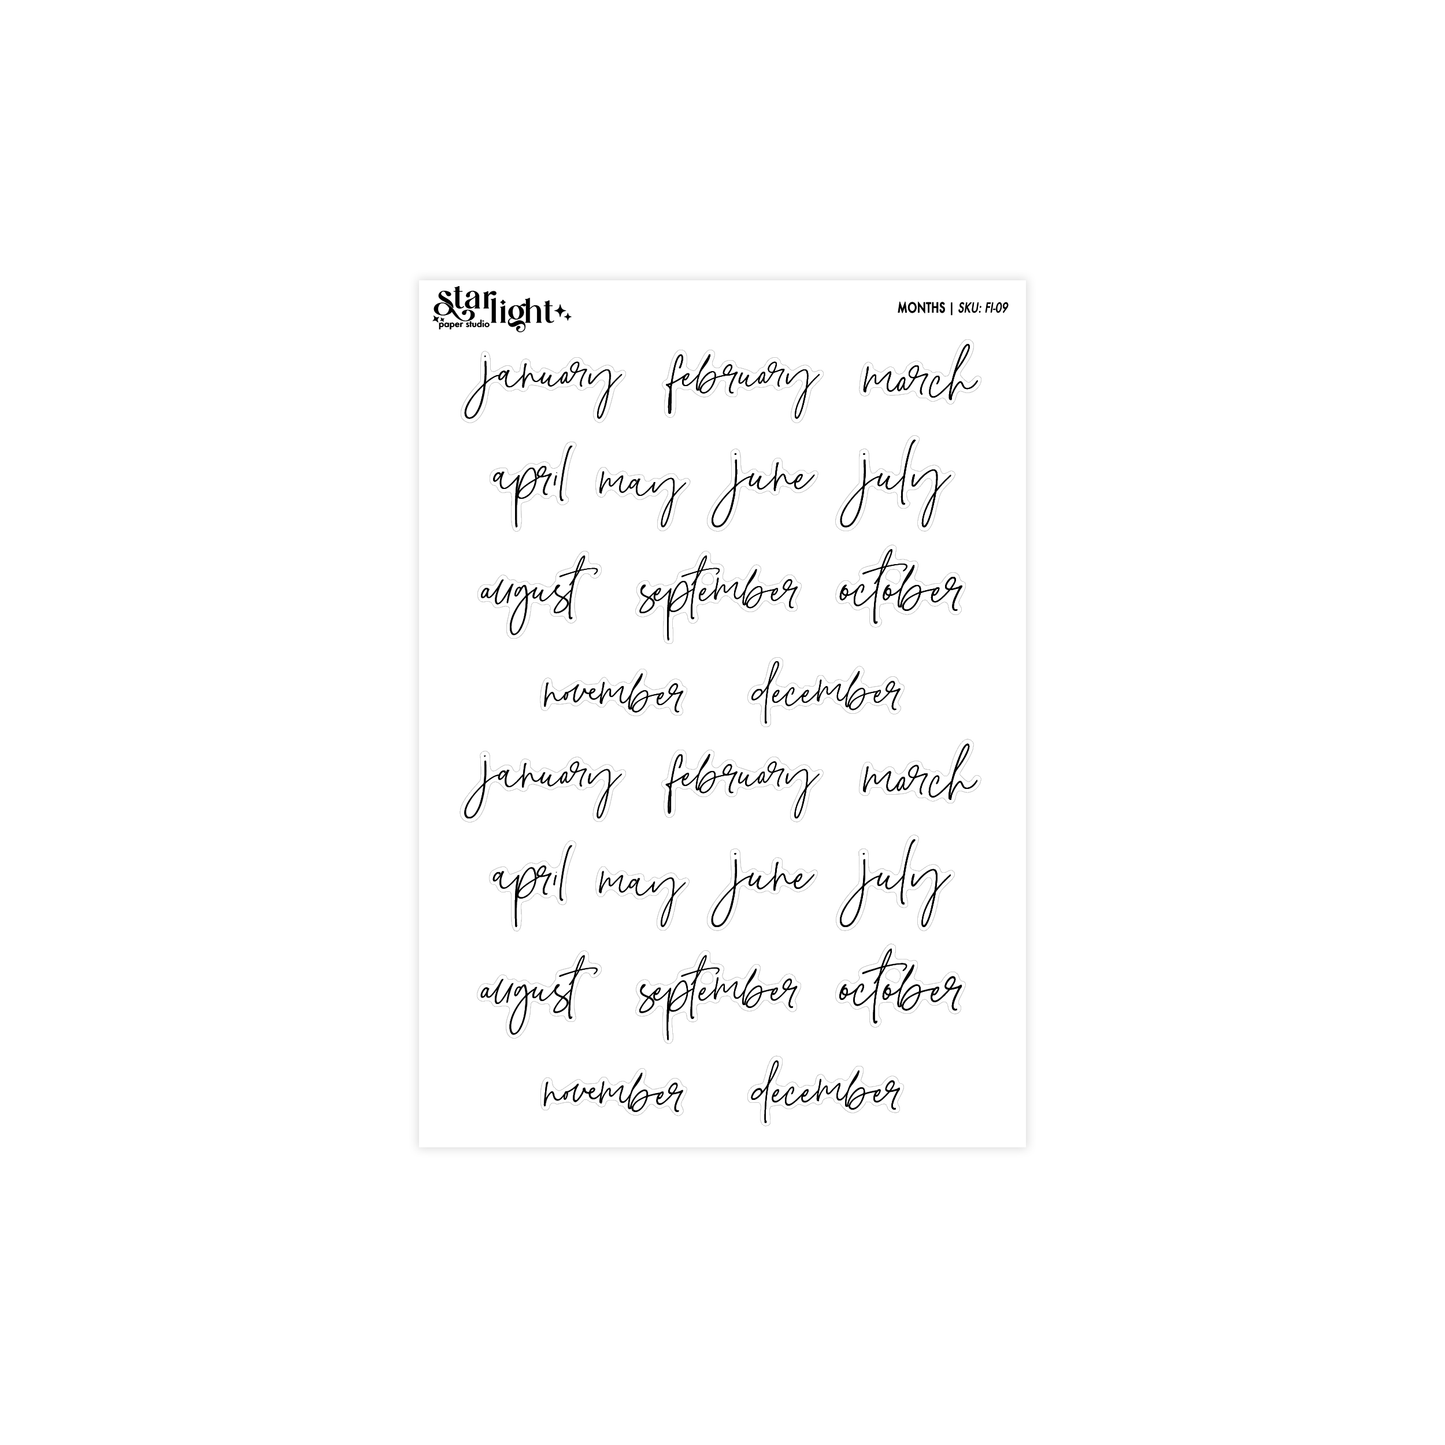 starlight
paper studio
MONTHS | SKU: FI-09
january february march
april may june july
august september october
november december
january february march
april may june july
august september october
november december